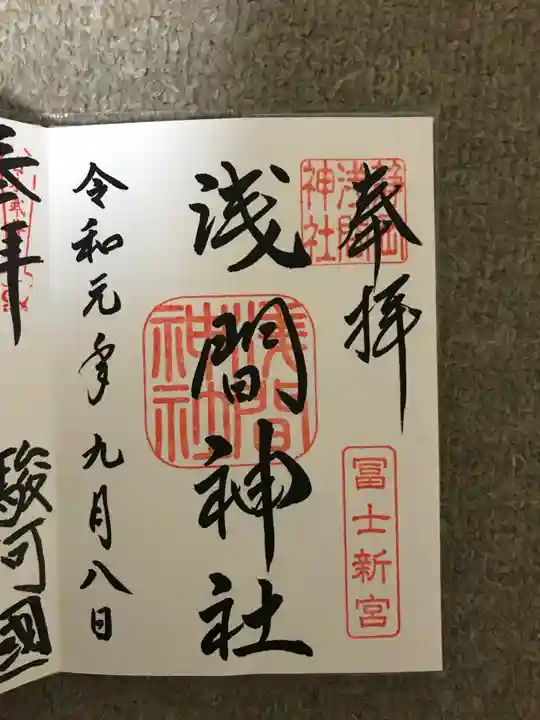 奉拝
静岡浅間神社
冨士新宮
浅間神社
浅間神社
令和元年九月八日
奉拝
駿河國